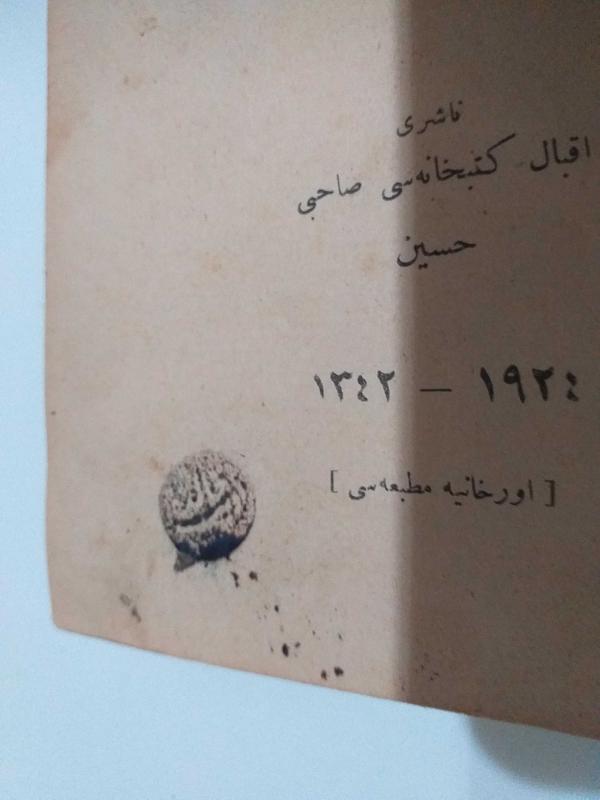 ناشری
اقبال كتبخانه‌سی صاحبی
حسین
١٩٢٤ — ١٣٤٢
[ اورخانیه مطبعه‌سی ]